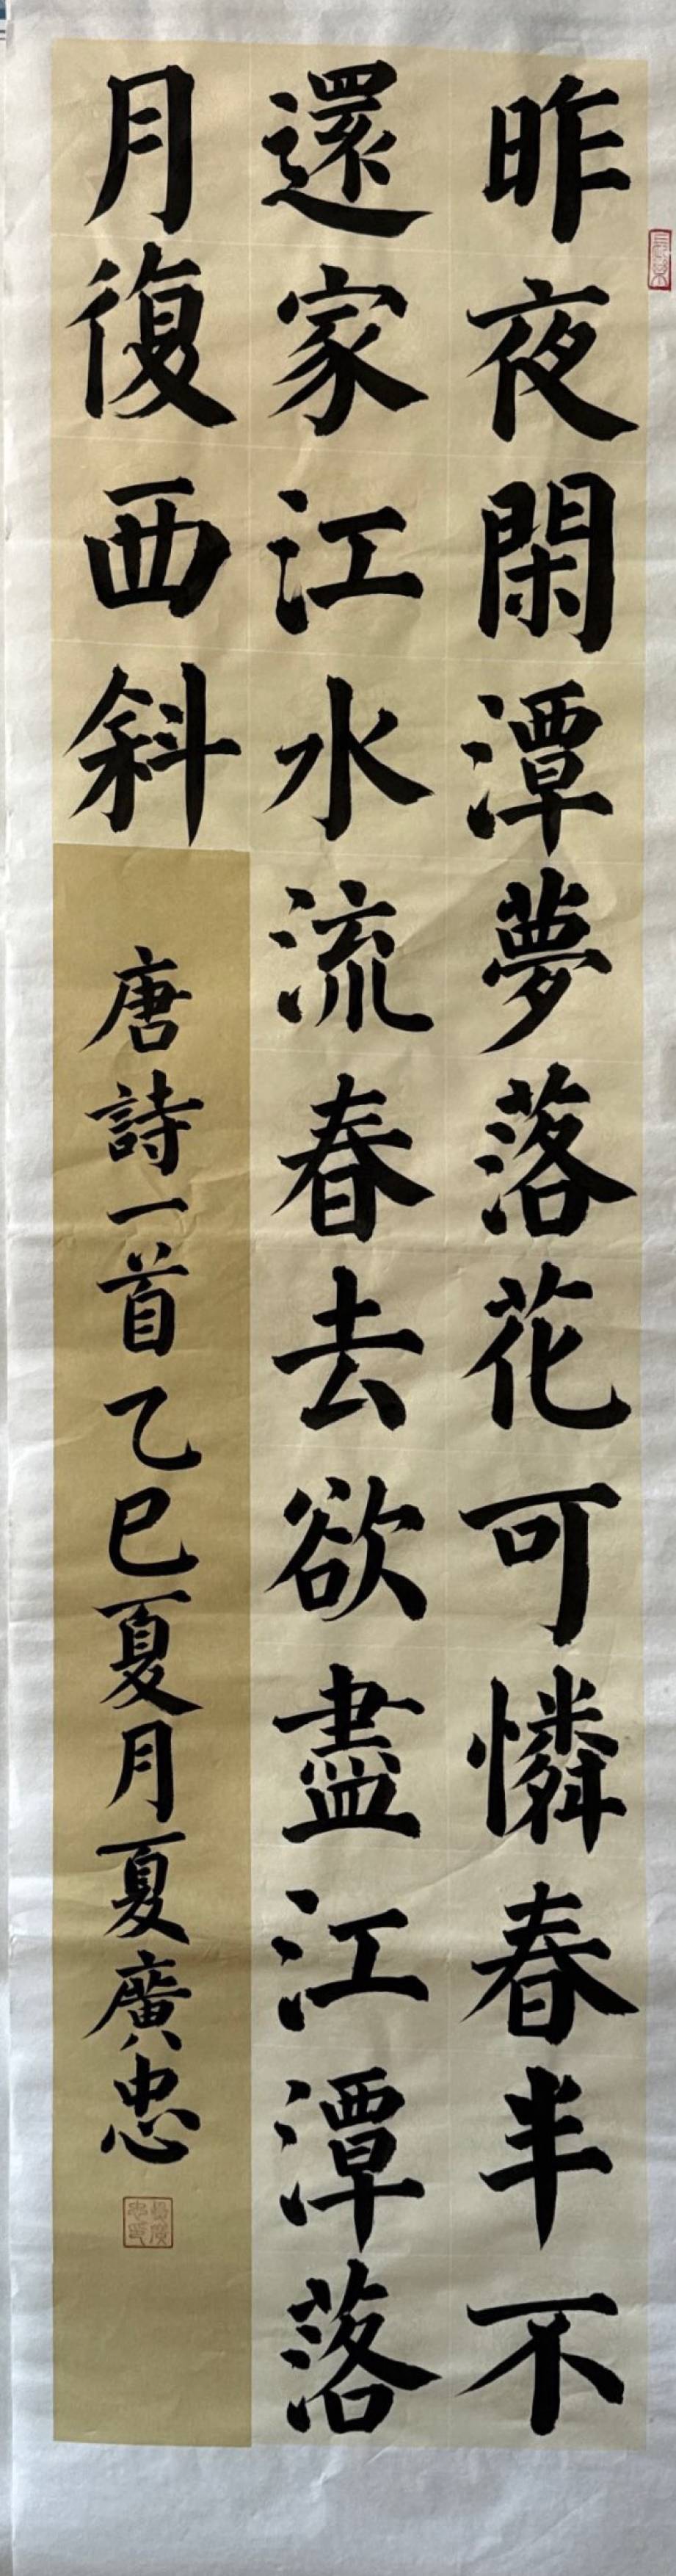 昨夜閑潭夢落花可憐春半不
還家江水流春去欲盡江潭落
月復西斜
唐詩一首乙巳夏月夏廣忠